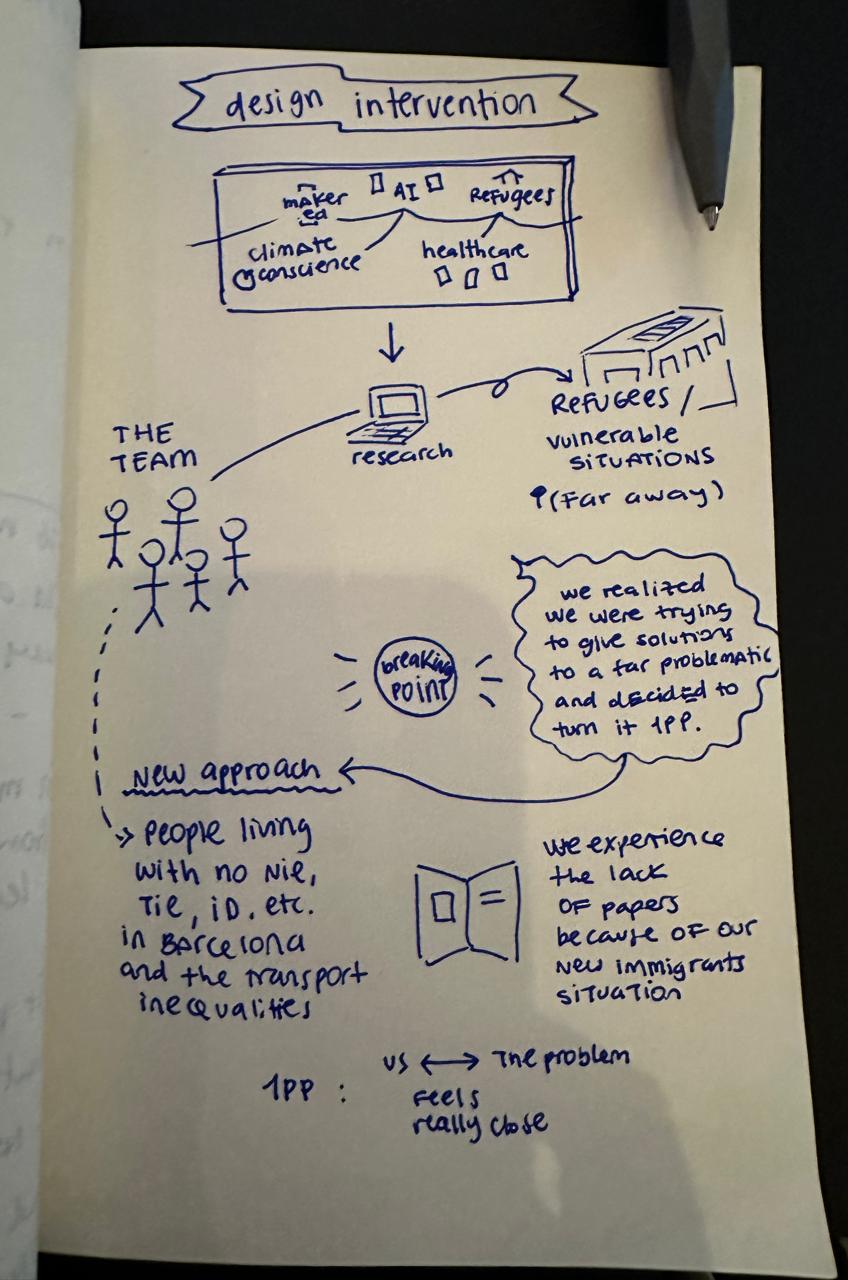 design intervention
maker
ed
AI
Refugees
climate
conscience
healthcare
THE
TEAM
research
REFUGEES /
vulnerable
SITUATIONS
(Far away)
we realized
we were trying
to give solutions
to a far problematic
and decided to
turn it 1PP.
breaking
POINT
New approach
People living
with no Nie,
Tie, iD, etc.
in Barcelona
and the transport
inequalities
we experience
the lack
OF papers
because OF our
New immigrants
situation
1PP :
us ↔ The problem
Feels
really close